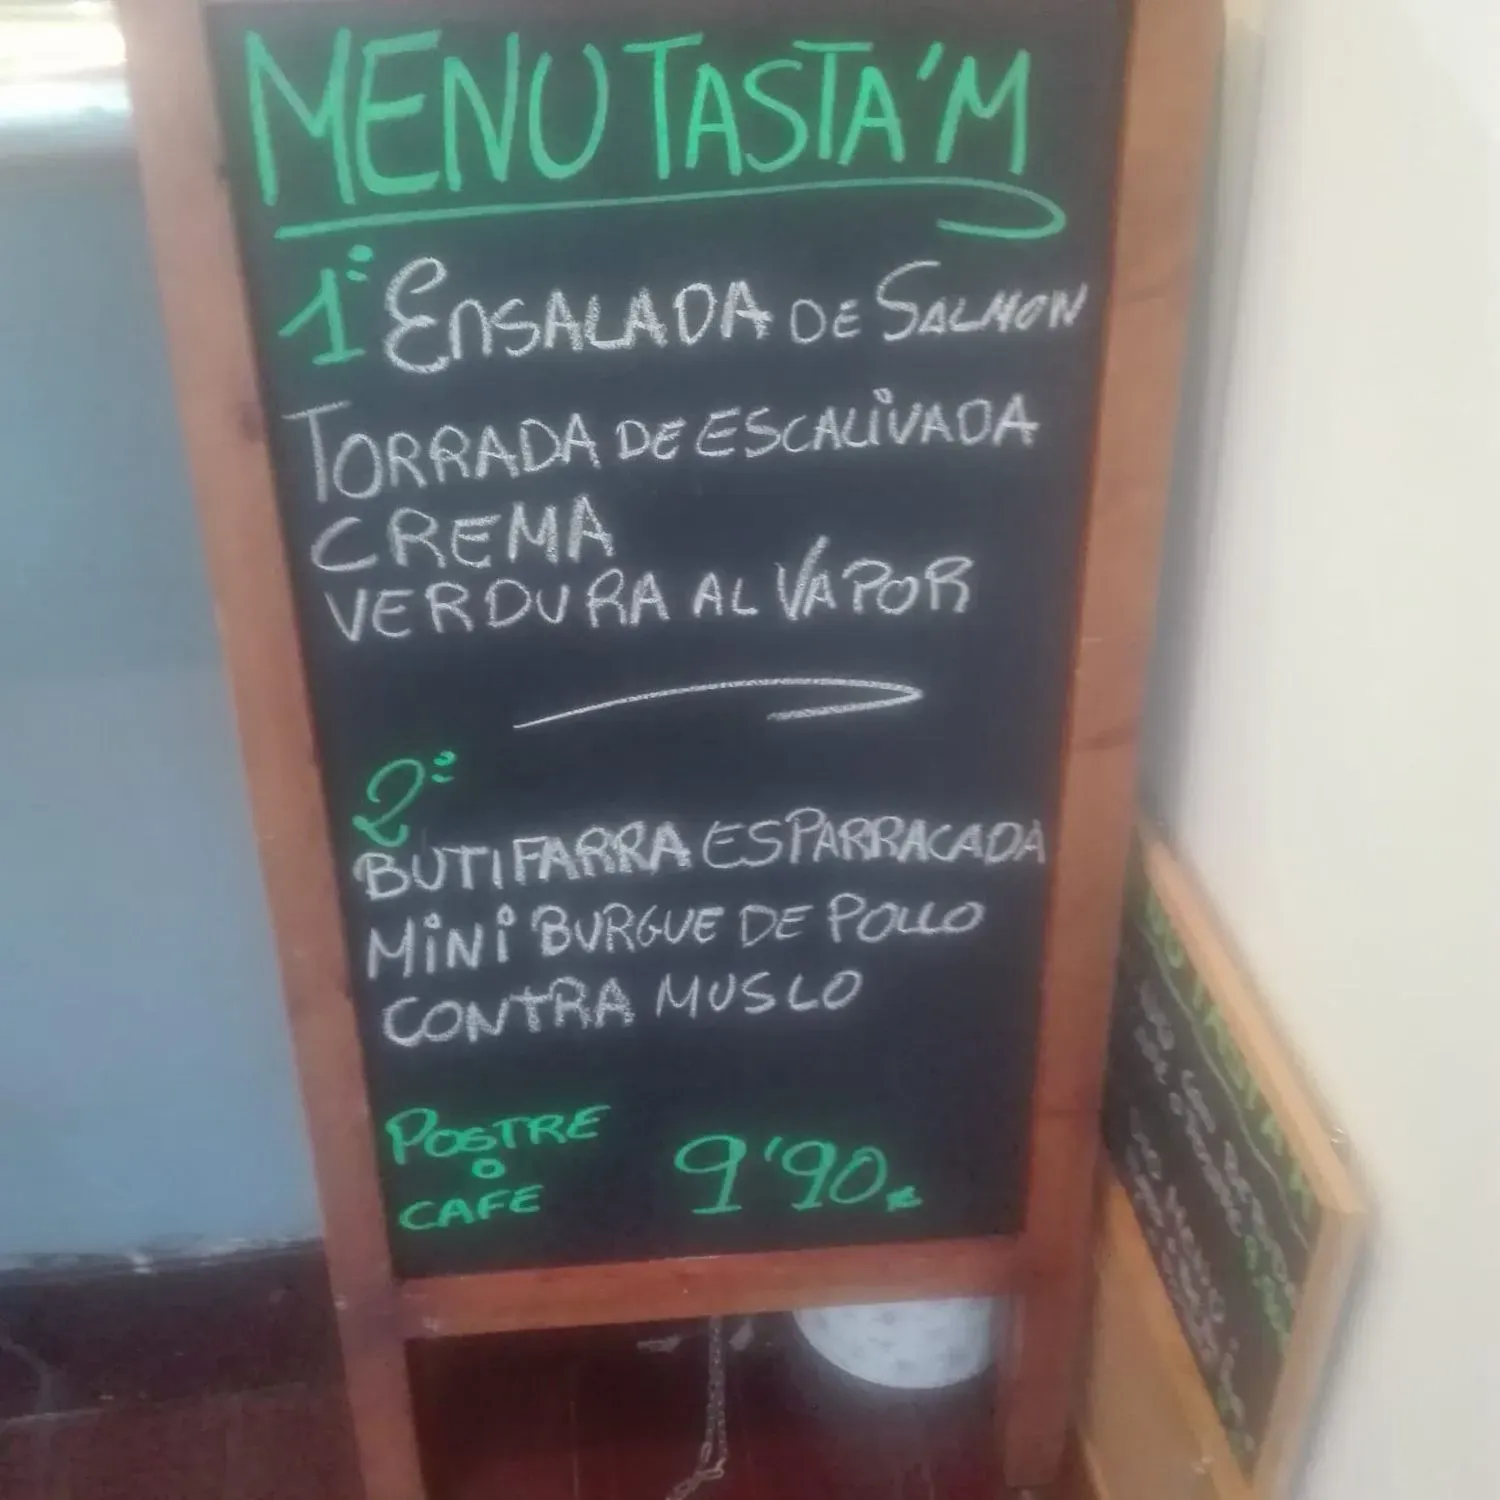 MENU TASTA'M
1º ENSALADA DE SALMON
TORRADA DE ESCALIVADA
CREMA
VERDURA AL VAPOR
2º
BUTIFARRA ESPARRACADA
MINI BURGUE DE POLLO
CONTRA MUSLO
POSTRE
O
CAFE
9'90€